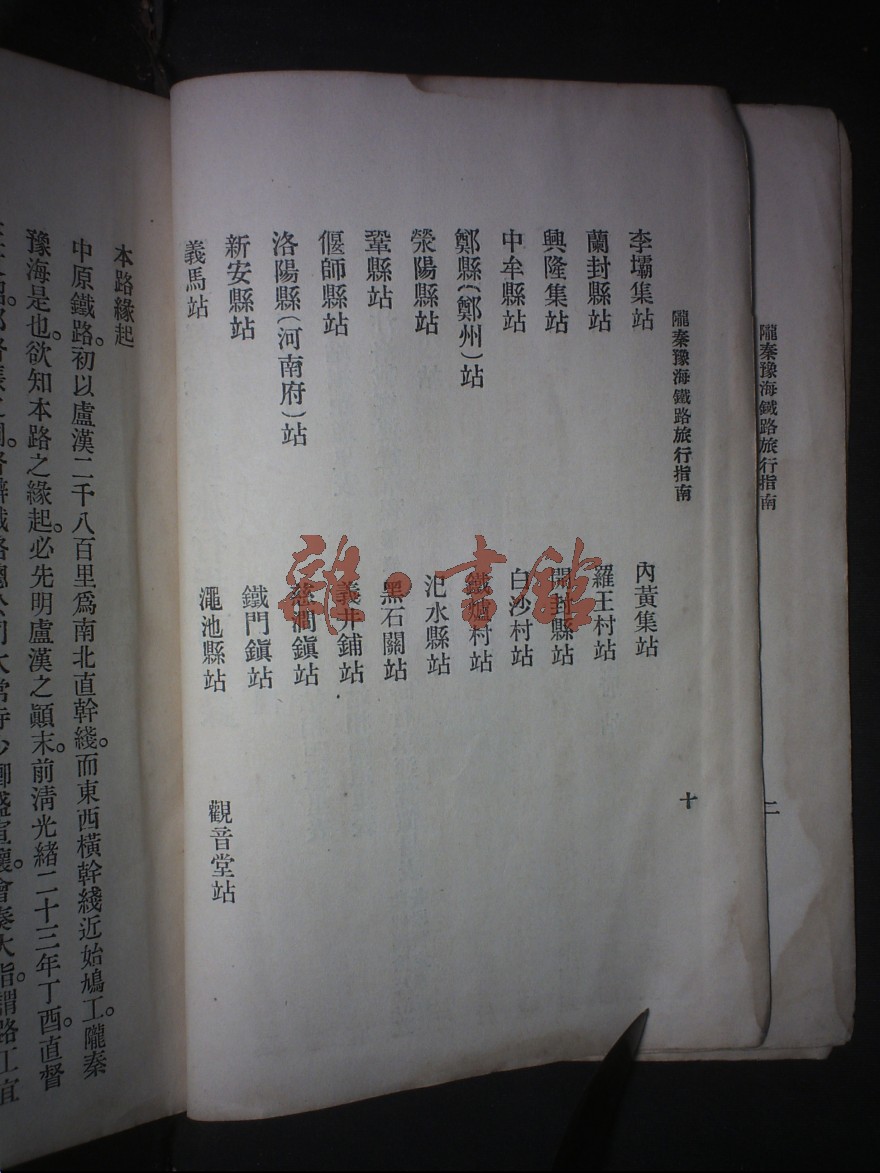 隴秦豫海鐵路旅行指南
二
隴秦豫海鐵路旅行指南
十
李壩集站
內黃集站
蘭封縣站
羅王村站
興隆集站
開封縣站
中牟縣站
白沙村站
鄭縣(鄭州)站
鐵爐村站
滎陽縣站
汜水縣站
鞏縣站
黑石關站
偃師縣站
義井鋪站
洛陽縣(河南府)站
慈澗鎮站
新安縣站
鐵門鎮站
義馬站
澠池縣站
觀音堂站
雜·書館
本路緣起
中原鐵路。初以盧漢二千八百里爲南北直幹綫。而東西橫幹綫近始鳩工。隴秦
豫海是也。欲知本路之緣起。必先明盧漢之顚末。前淸光緖二十三年丁酉。直督